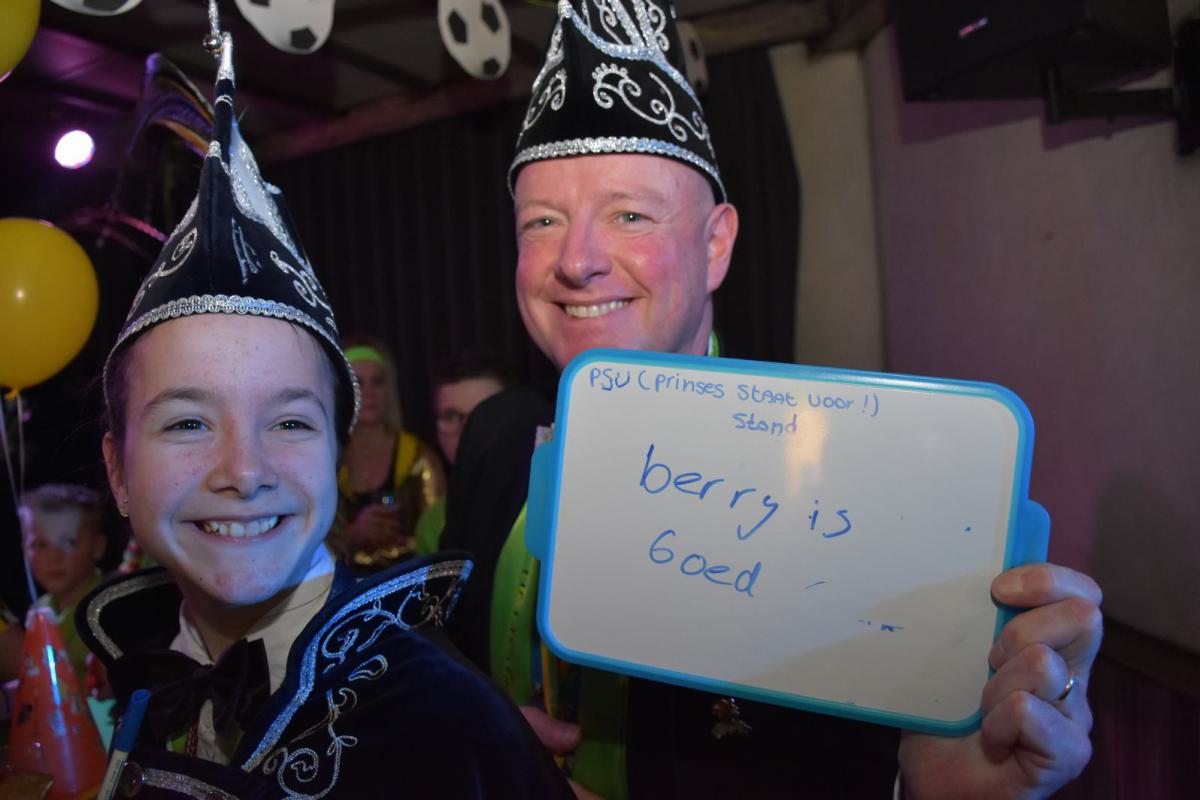 PSV (prinses staat voor!)
stond
berry is
Goed